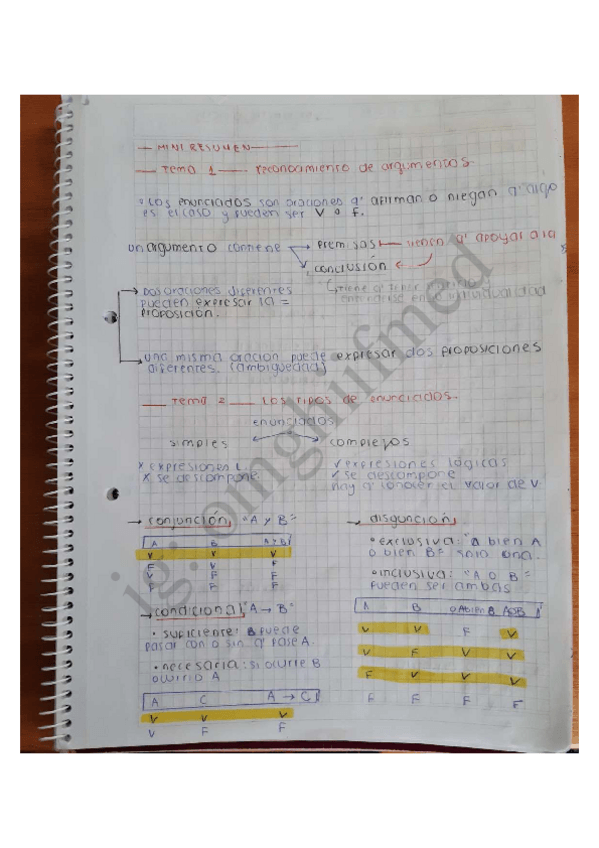 — MINI RESUMEN —
— Tema 1 — reconocimiento de argumentos.
• Los enunciados son oraciones q' afirman o niegan q' algo
es el caso y pueden ser V o F.
un argumento contiene → premisas → tienen q' apoyar a la
conclusión ←
tiene q' tener
entenderse en individualidad
→ Dos oraciones diferentes
pueden expresar la =
PROPOSICIÓN.
→ una misma oración puede expresar dos proposiciones
diferentes. (ambigüedad)
— Tema 2 — Los tipos de enunciados.
enunciados
simples ← → complejos
x expresiones L. ✓ expresiones lógicas
x se descompone. ✓ se descompone
hay q' conocer el valor de V.
→ conjunción, "A y B"
A B A y B
V V V
F V F
V F F
F F F
→ condicional "A → B"
• suficiente: B puede
pasar con o sin q' pase A.
• necesaria: si ocurre B
ocurrió A
A C A → C
V V V
V F F
→ disgunción,
• exclusiva: "o bien A
o bien B" solo una.
• inclusiva: "A o B"
pueden ser ambas
A B o A bien B AoB
V V F V
V F V V
F V V V
F F F F
ig: omghufmed